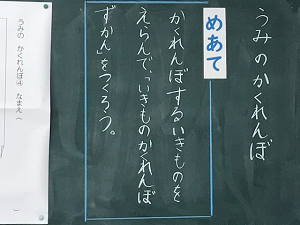 うみのかくれんぼ
めあて
かくれんぼするいきものを
えらんで、「いきものかくれんぼ
ずかん」をつくろう。
うみの かくれんぼ④ なまえ（ ）